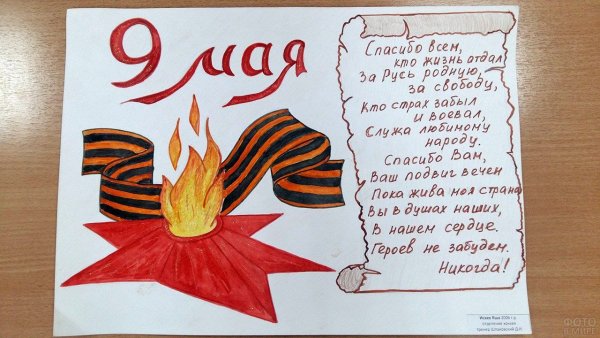 9 мая
Спасибо всем,
кто жизнь отдал
За Русь родную,
за свободу,
Кто страх забыл
и воевал,
Служа любимому
народу.
Спасибо Вам,
Ваш подвиг вечен
Пока жива моя страна
Вы в душах наших,
В нашем сердце.
Героев не забудем.
Никогда!
2006 г.р.
отделение хоккея
ФОТО
В МИРЕ